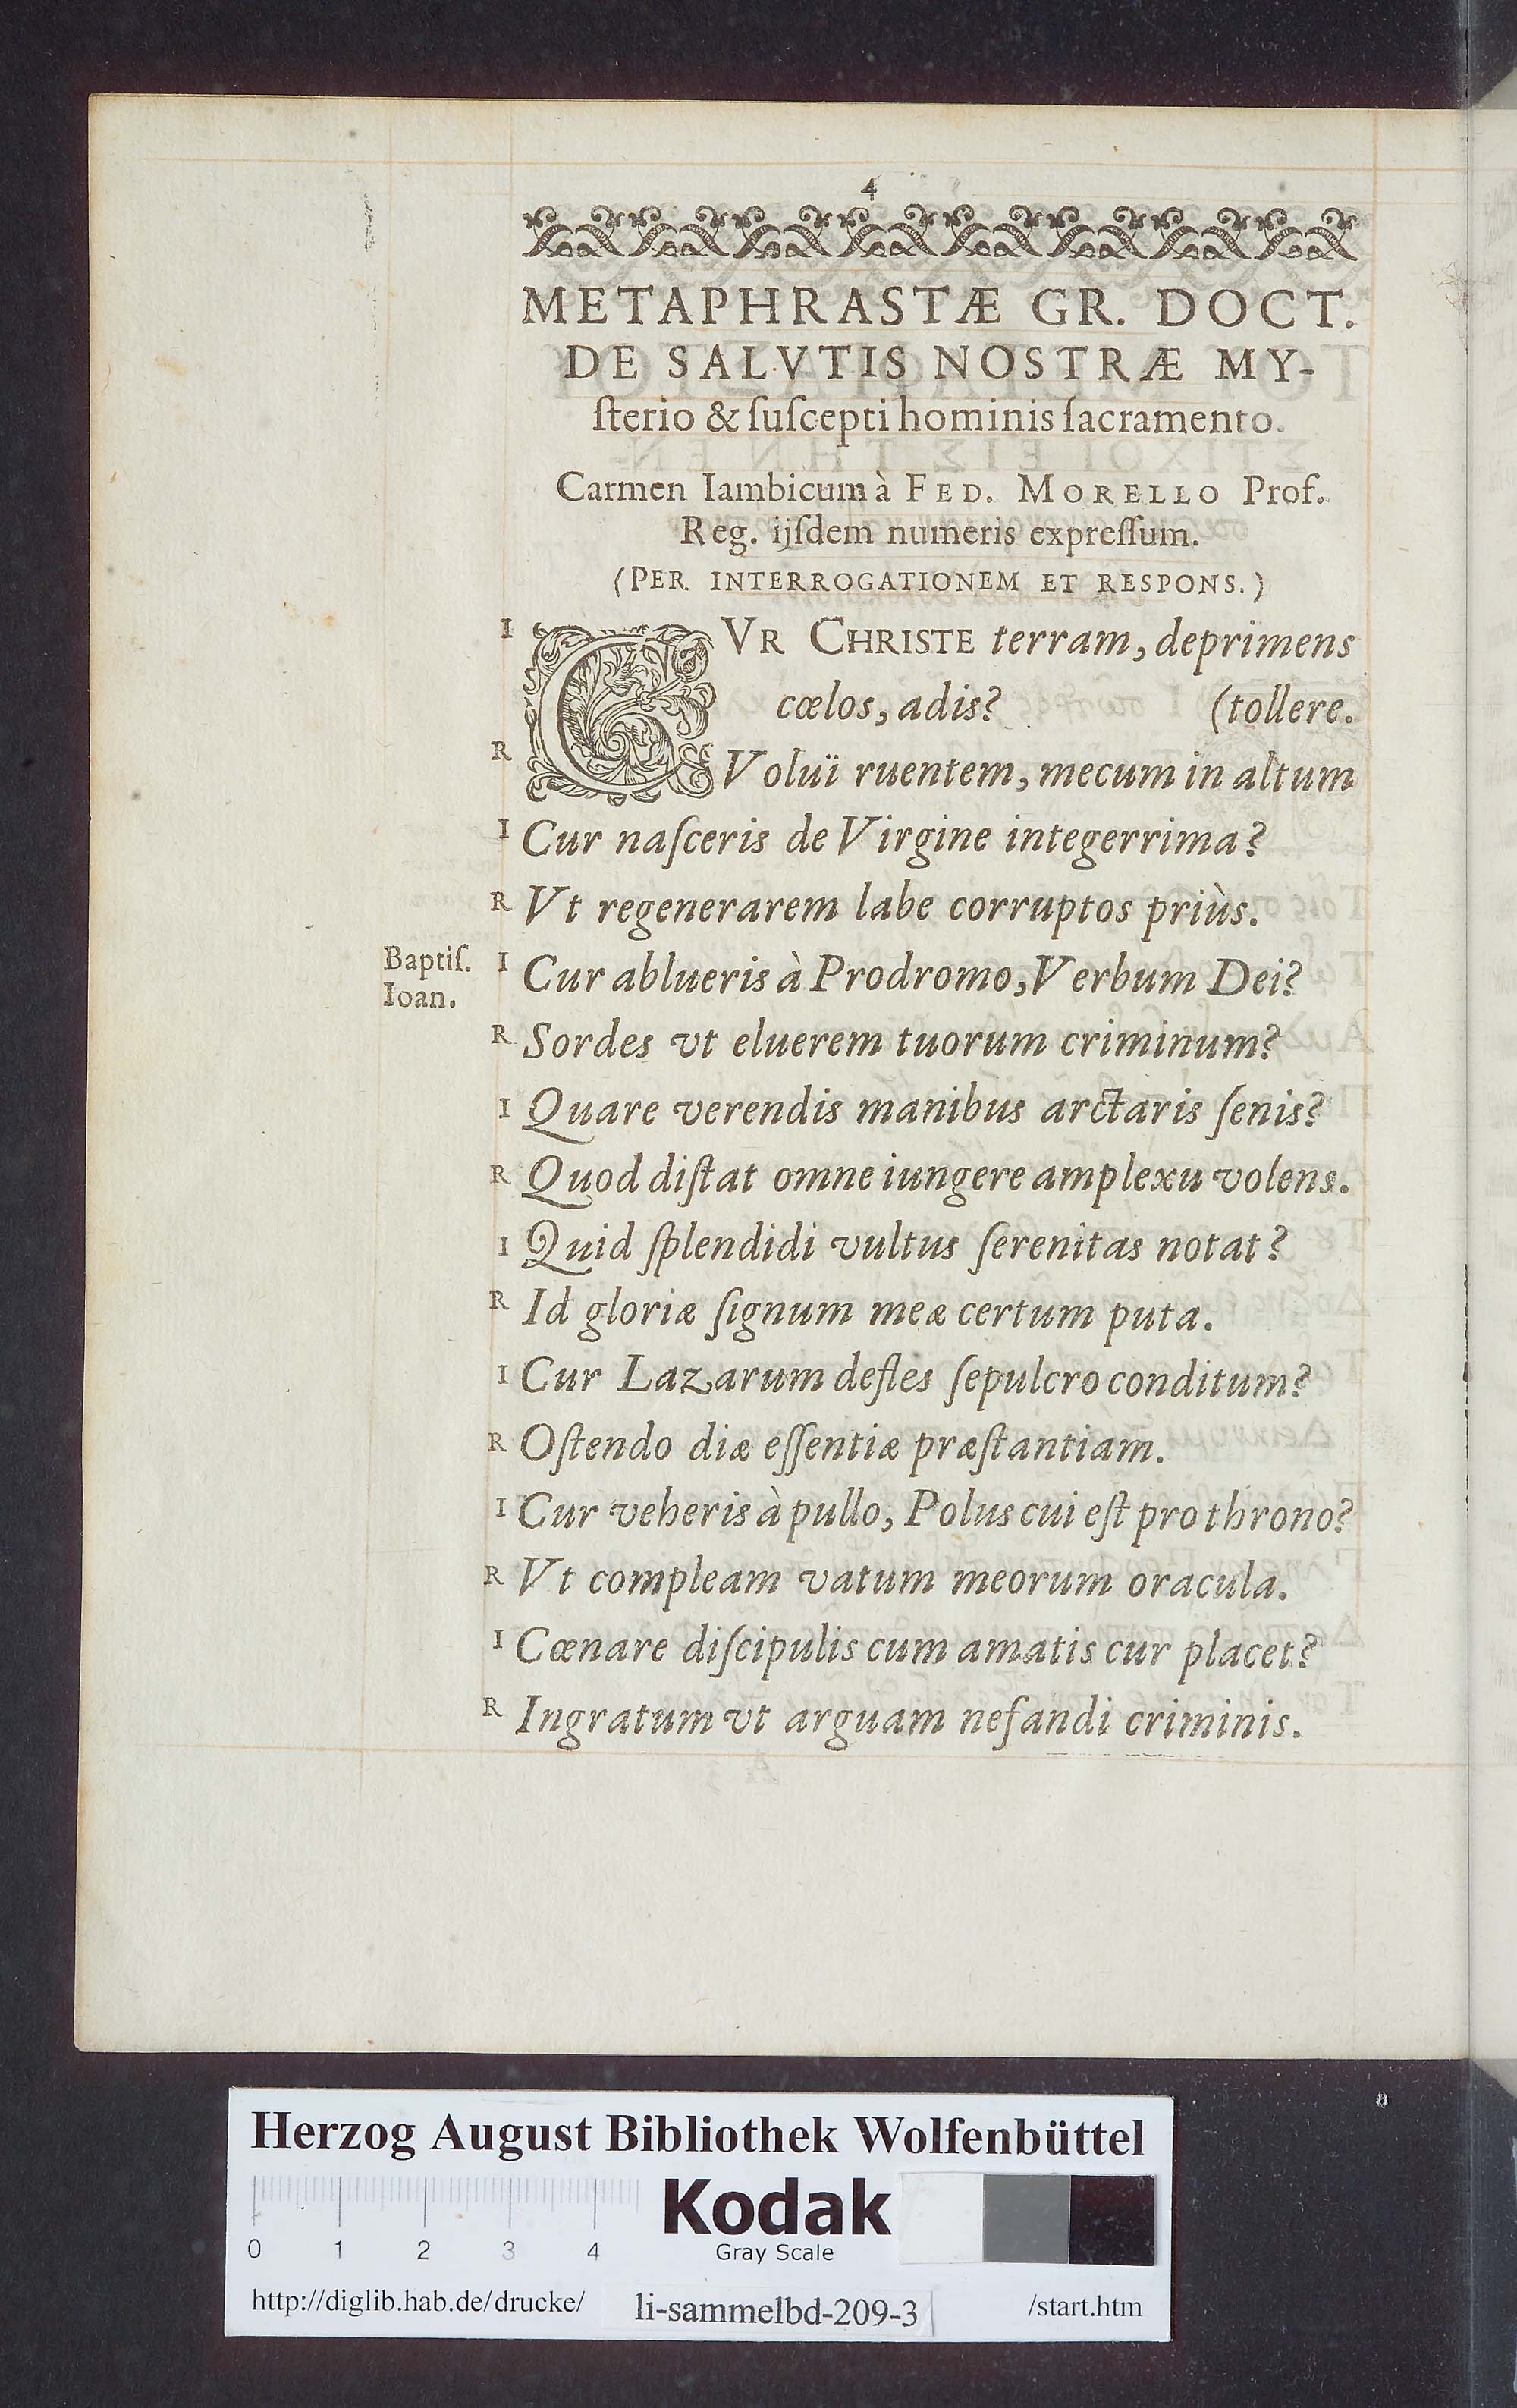 4
METAPHRASTÆ GR. DOCT.
DE SALVTIS NOSTRÆ MY-
ſterio & ſuſcepti hominis ſacramento.
Carmen Iambicum à FED. MORELLO Prof.
Reg. ijſdem numeris expreſſum.
(PER INTERROGATIONEM ET RESPONS.)
I CVR CHRISTE terram, deprimens
cœlos, adis? (tollere.
R Voluï ruentem, mecum in altum
I Cur naſceris de Virgine integerrima?
R Vt regenerarem labe corruptos priùs.
Baptiſ. Ioan. I Cur ablueris à Prodromo, Verbum Dei?
R Sordes vt eluerem tuorum criminum?
I Quare verendis manibus arctaris ſenis?
R Quod diſtat omne iungere amplexu volens.
I Quid ſplendidi vultus ſerenitas notat?
R Id gloriæ ſignum meæ certum puta.
I Cur Lazarum defles ſepulcro conditum?
R Oſtendo diæ eſſentiæ præſtantiam.
I Cur veheris à pullo, Polus cui eſt pro throno?
R Vt compleam vatum meorum oracula.
I Cœnare diſcipulis cum amatis cur placet?
R Ingratum vt arguam nefandi criminis.
Herzog August Bibliothek Wolfenbüttel
Kodak
0 1 2 3 4 Gray Scale
http://diglib.hab.de/drucke/ li-sammelbd-209-3 /start.htm